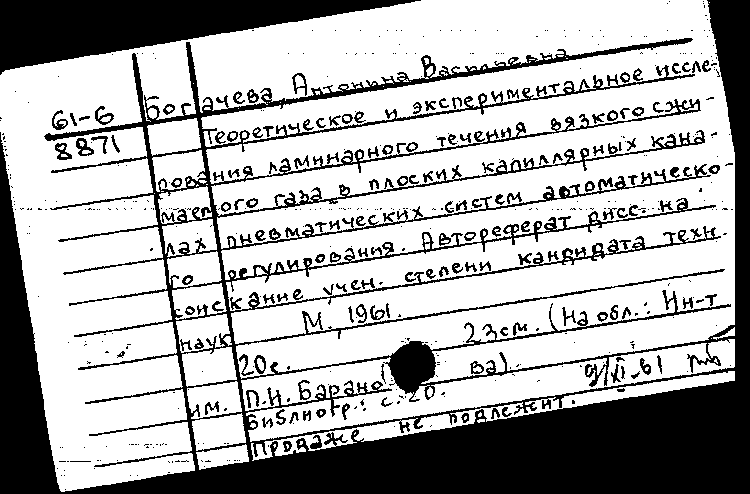 61-6 Богачева, Антонина Васильевна
8871 Теоретическое и экспериментальное иссле-
дования ламинарного течения вязкого сжи-
маемого газа в плоских капиллярных кана-
лах пневматических систем автоматическо-
го регулирования. Автореферат дисс. на
соискание учен. степени кандидата техн.
наук. М., 1961.
20с. 23см. (На обл.: Ин-т
им. П.И. Барано ва).
Библиогр.: с. 20. 9/XI-61
Продаже не подлежит.